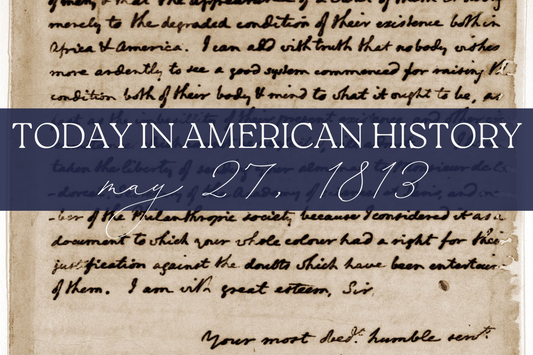 merely to the degraded condition of their existence both in
Africa & America. I can add with truth that no body wishes
more ardently to see a good system commenced for raising the
condition both of their body & mind to what it ought to be, as
TODAY IN AMERICAN HISTORY
may 27, 1813
-ber of the Philanthropic society, because I considered it as a
document to which your whole colour had a right for their
justification against the doubts which have been entertained
of them. I am with great esteem, Sir,
Your most obedt. humble servt.